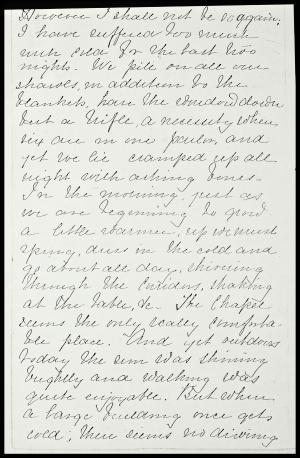 However I shall not be so again.
I have suffered too much
with cold for the last two
nights. We pile on all our
shawls, in addition to the
blankets, have the window down
but a trifle, a necessity when
six are in one parlor, and
yet we lie cramped up all
night with aching bones.
In the morning, just as
we are beginning to grow
a little warmer, up we must
spring, dress in the cold and
go about all day, shivering
through the corridors, shaking
at the table, &c. The Chapel
seems the only really comforta-
ble place. And yet outdoors
today the sun was shining
brightly and walking was
quite enjoyable. But when
a large building once gets
cold, there seems no driving